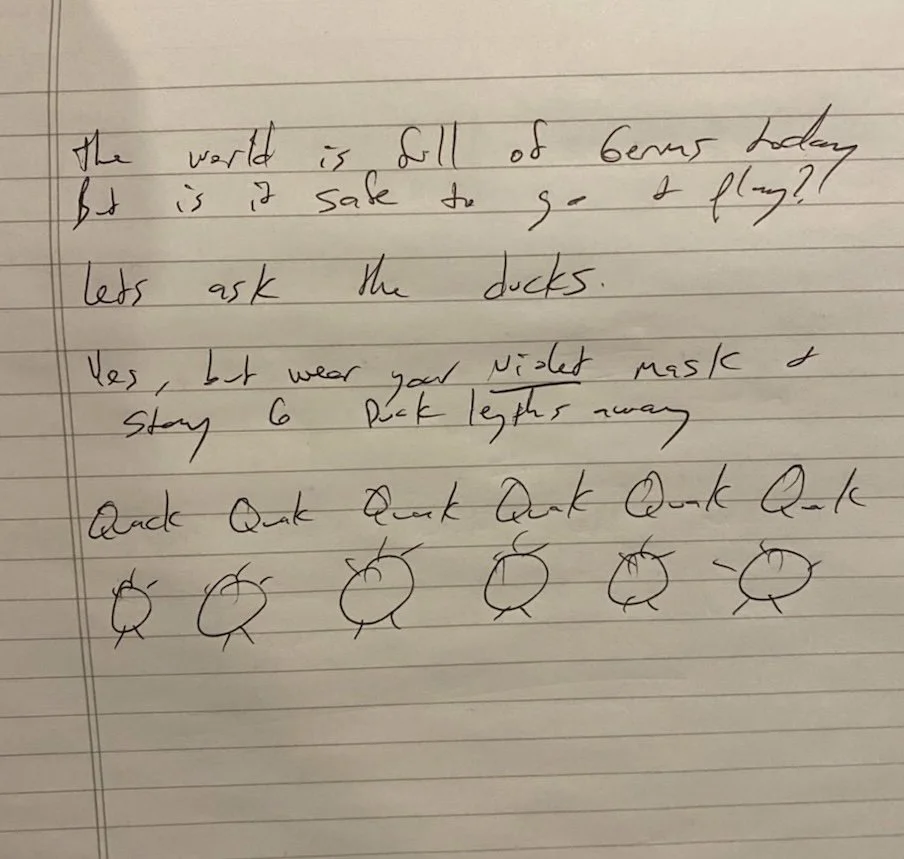 The world is full of Germs today
But is it safe to go & play?!
Lets ask the ducks.
Yes, but wear your Violet Mask &
stay 6 Duck legths away
Quack Quak Quak Quak Quak Quak